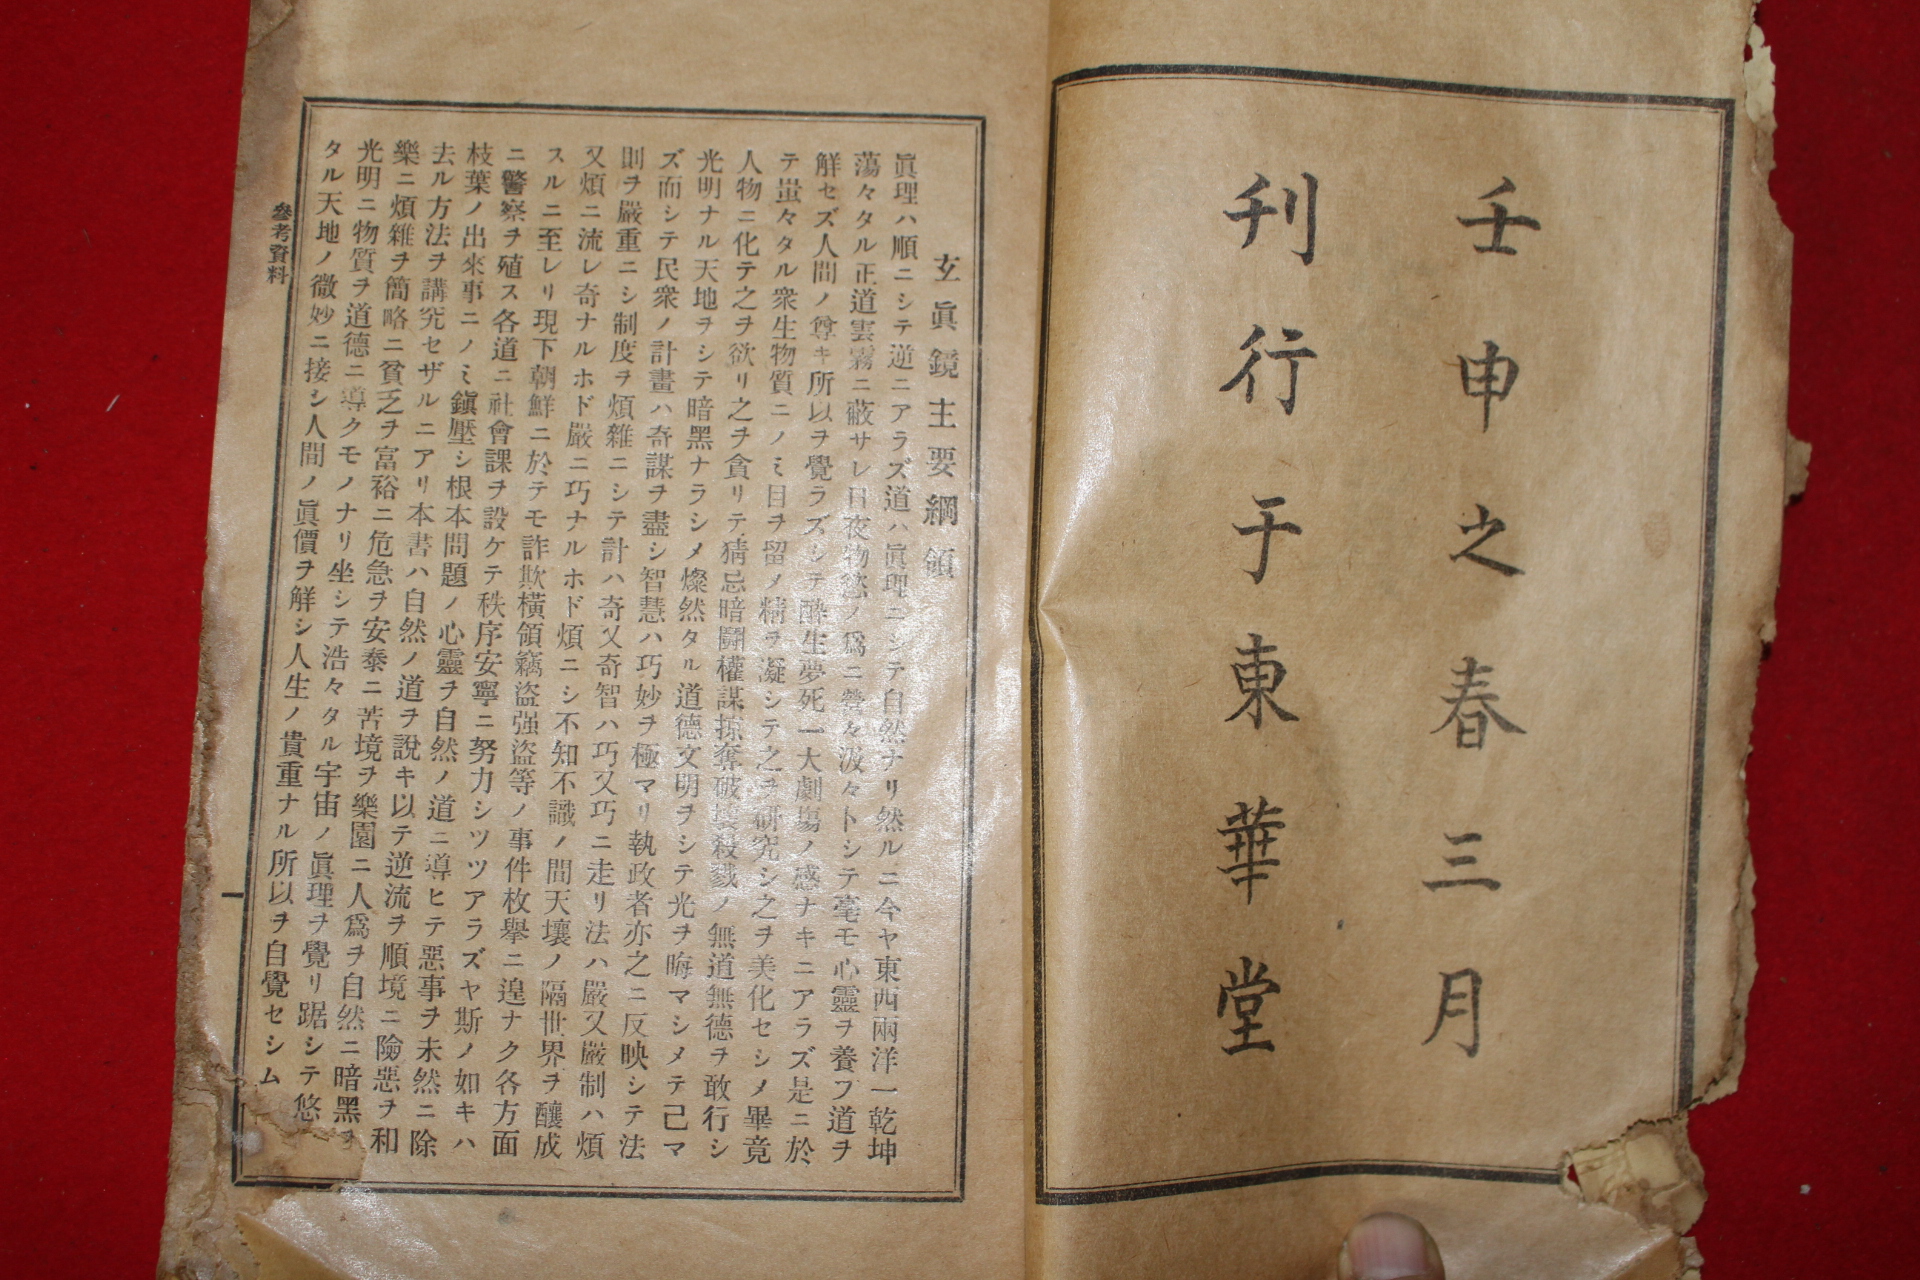 壬申之春三月
刊行于東華堂
玄眞鏡主要綱領
眞理ハ順ニシテ逆ニアラズ道ハ眞理ニシテ自然ナリ然ルニ今ヤ東西兩洋一乾坤
蕩々タル正道雲霧ニ蔽サレ日夜物慾ノ爲ニ營々汲々トシテ毫モ心靈ヲ養フ道ヲ
解セズ人間ノ尊キ所以ヲ覺ラズシテ醉生夢死一大劇場ノ感ナキニアラズ是ニ於
テ蚩々タル衆生物質ニノミ目ヲ留ノ精ヲ凝シテ之ヲ研究シ之ヲ美化セシメ畢竟
人物ニ化テ之ヲ欲リ之ヲ貪リテ猜忌暗鬪權謀掠奪破壞殺戮ノ無道無德ヲ敢行シ
光明ナル天地ヲシテ暗黑ナラシメ燦然タル道德文明ヲシテ光ヲ晦マシメテ己マ
ズ而シテ民衆ノ計畫ハ奇謀ヲ盡シ智慧ハ巧妙ヲ極マリ執政者亦之ニ反映シテ法
則ヲ嚴重ニシ制度ヲ煩雜ニシテ計ハ奇又奇智ハ巧又巧ニ走リ法ハ嚴又嚴制ハ煩
又煩ニ流レ奇ナルホド嚴ニ巧ナルホド煩ニシ不知不識ノ間天壤ノ隔世界ヲ釀成
スルニ至レリ現下朝鮮ニ於テモ詐欺橫領竊盜强盜等ノ事件枚擧ニ遑ナク各方面
ニ警察ヲ殖ス各道ニ社會課ヲ設ケテ秩序安寧ニ努力シツツアラズヤ斯ノ如キハ
枝葉ノ出來事ニノミ鎭壓シ根本問題ノ心靈ヲ自然ノ道ニ導ヒテ惡事ヲ未然ニ除
去ル方法ヲ講究セザルニアリ本書ハ自然ノ道ヲ說キ以テ逆流ヲ順境ニ險惡ヲ和
樂ニ煩雜ヲ簡略ニ貧乏ヲ富裕ニ危急ヲ安泰ニ苦境ヲ樂園ニ人爲ヲ自然ニ暗黑ヲ
光明ニ物質ヲ道德ニ導クモノナリ坐シテ浩々タル宇宙ノ眞理ヲ覺リ踞シテ悠
タル天地ノ微妙ニ接シ人間ノ眞價ヲ解シ人生ノ貴重ナル所以ヲ自覺セシム
參考資料
一